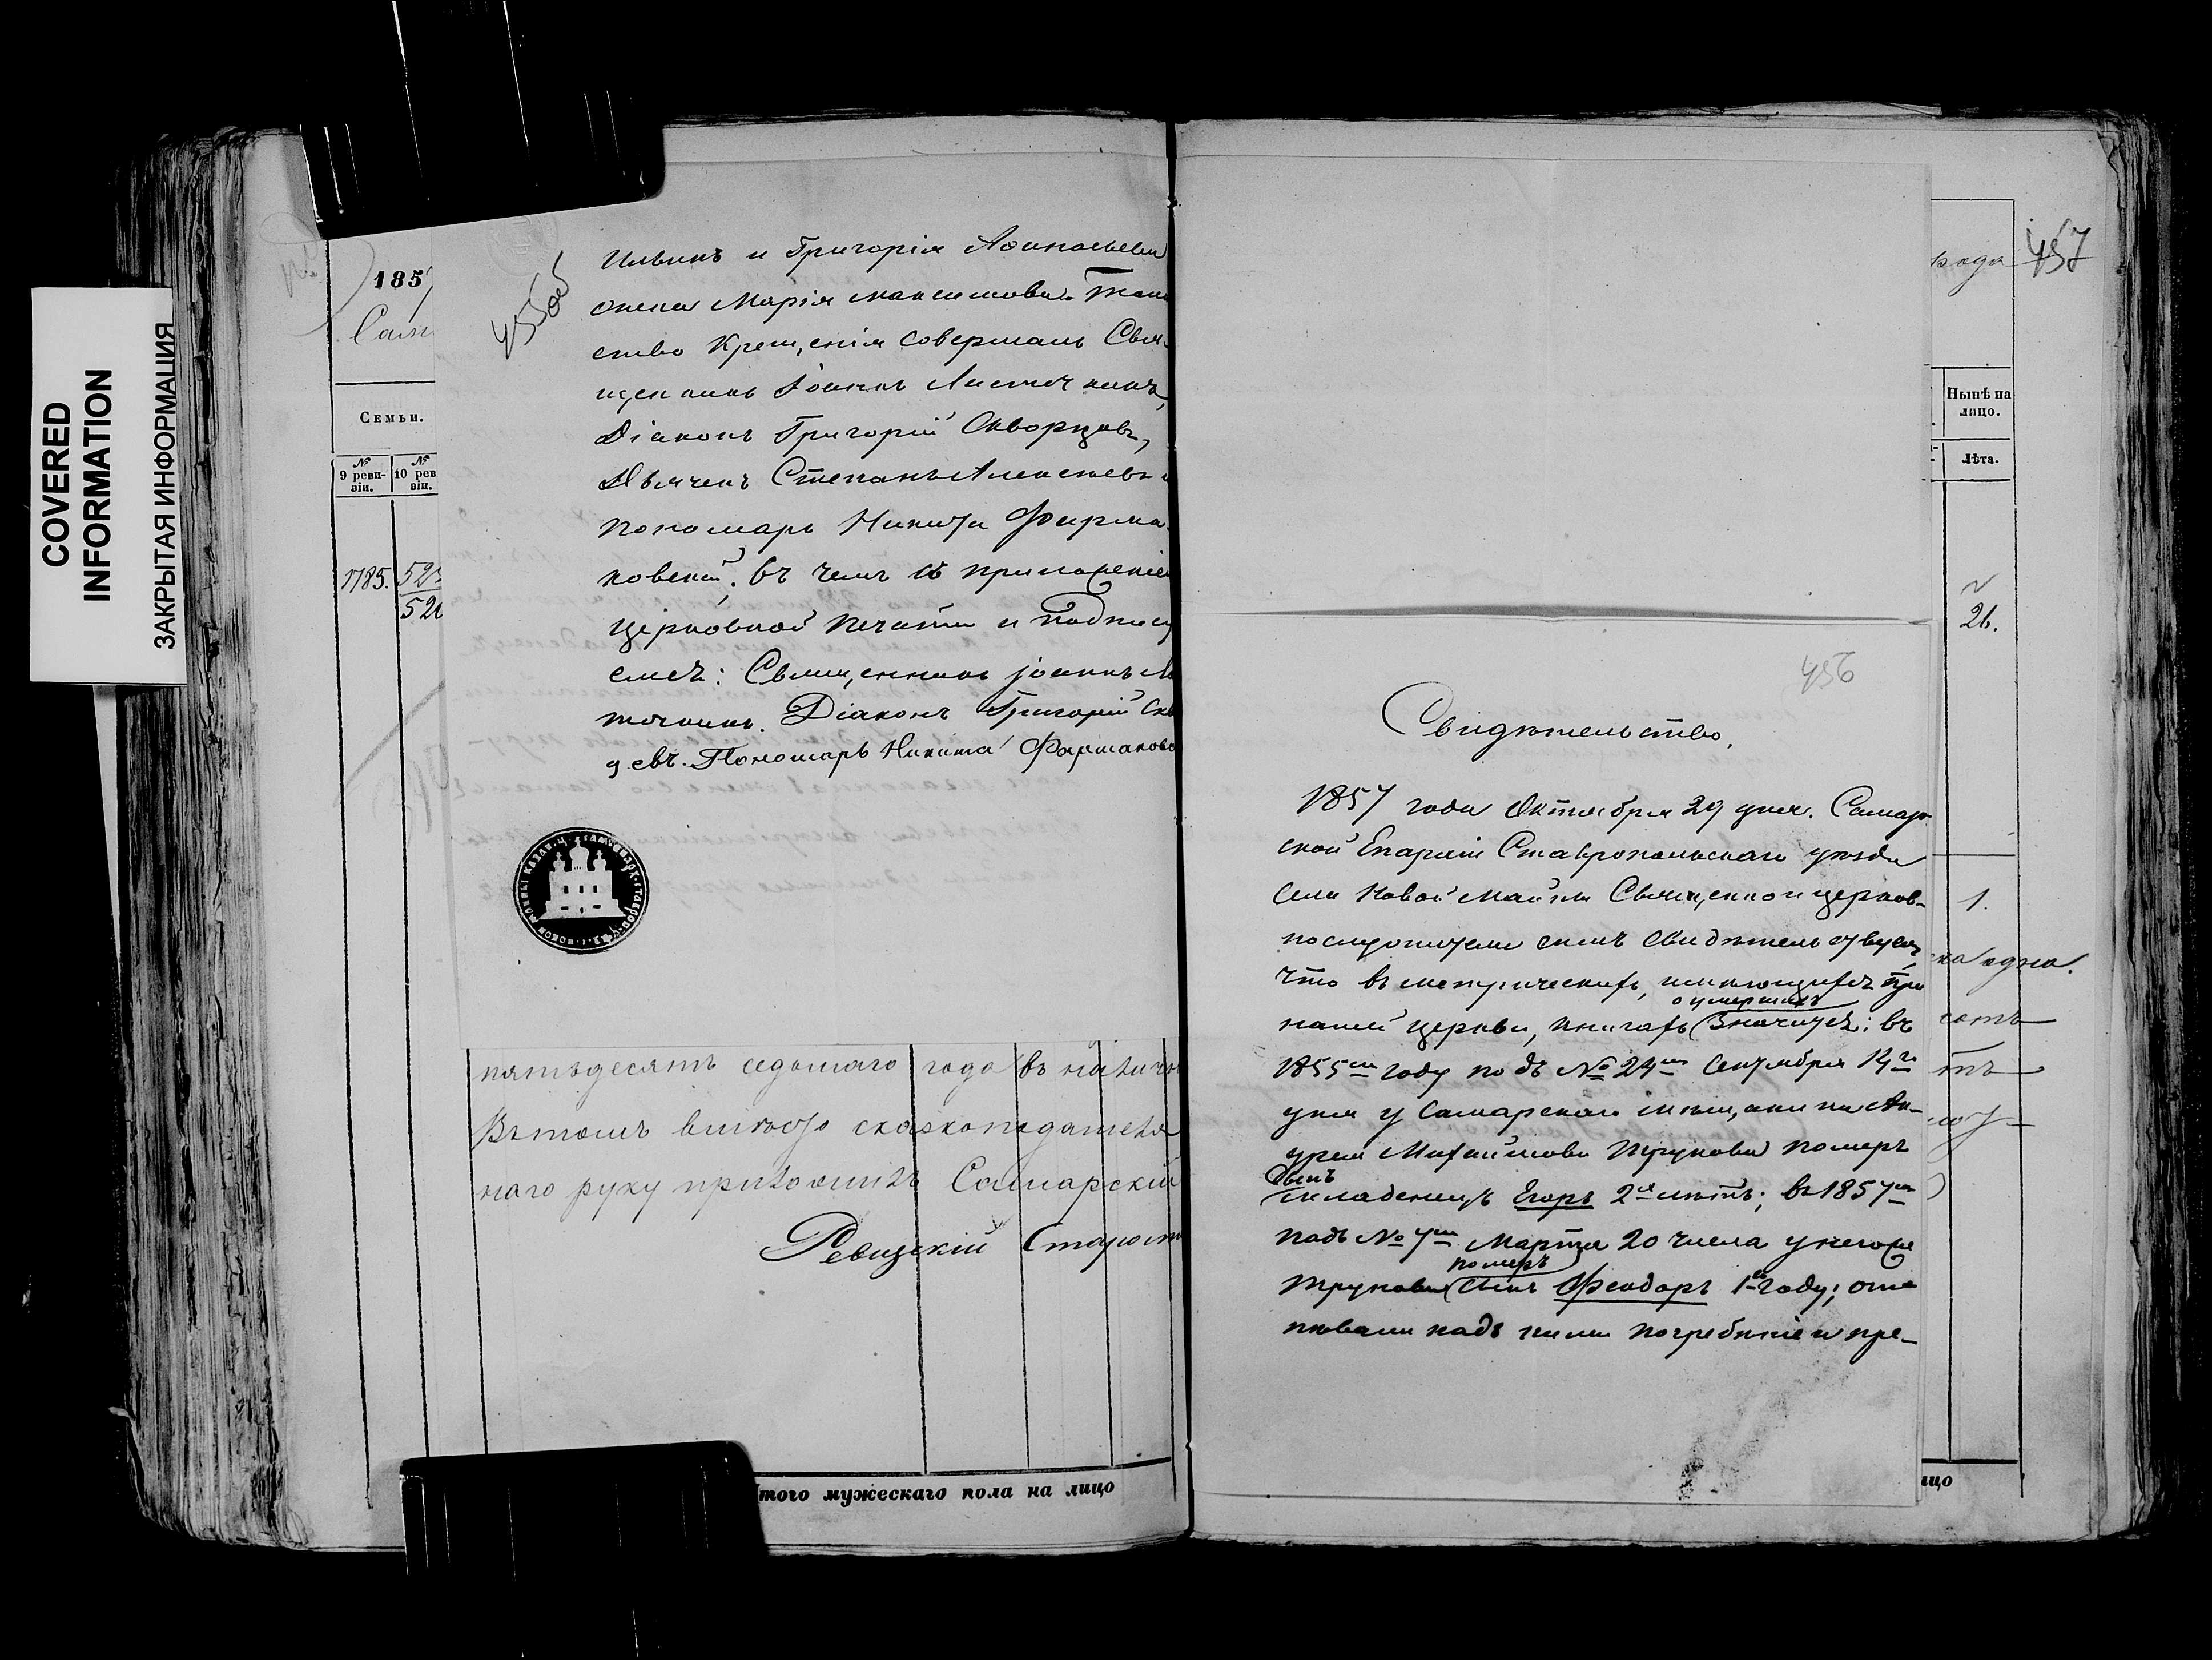 COVERED INFORMATION
ЗАКРЫТАЯ ИНФОРМАЦИЯ
185
Сам
Семьи.
№ 9 реви-зіи.
№ 10 рев зіи.
1785.
455об
Ильинъ и Григорія Аѳанасьева
жена Марія Максимова. Таин
ство Крещенія совершалъ Свя-
щенникъ Іоаннъ Листочкинъ,
Діаконъ Григорій Скворцовъ,
Дьячекъ Степанъ Алексѣевъ и
пономарь Никита Фирма-
ковскій; въ чемъ съ приложеніем
Церковной печати и подпису
емсѧ: Священникъ Іоаннъ Ли
точкинъ. Діаконъ Григорій Скв
цевъ. Пономарь Никита Фармаковс
пятьдесятъ седьмаго года въ наличн
Въ томъ вмѣсто сказкоподателя
наго руку приложилъ Самарскій
Ревизскій Старост
того мужескаго пола на лицо
457
года
Нынѣ на лицо.
Лѣта.
26.
1.
одна.
456
Свидѣтельство.
1857 года Октября 29 дня. Самар
ской Епархіи Ставропольскаго уѣзда
Села Новой Майны Священно и церков-
нослужители симъ свидѣтельствуемъ,
что въ метрическихъ, имѣющихся при
о умершихъ
нашей церкви, книгахъ значится: въ
1855м году подъ № 24м Сентября 14го
дня у Самарскаго мѣщанина Ан-
дрея Михайлова Трунова померъ
сынъ
младенецъ Егоръ 2х лѣтъ; въ 1857м
подъ № 7м Марта 20 числа у негоже
померъ
Трунова сынъ Феодоръ 1го году; отпѣ
пѣвали надъ ними погребеніе и пре-
ицо